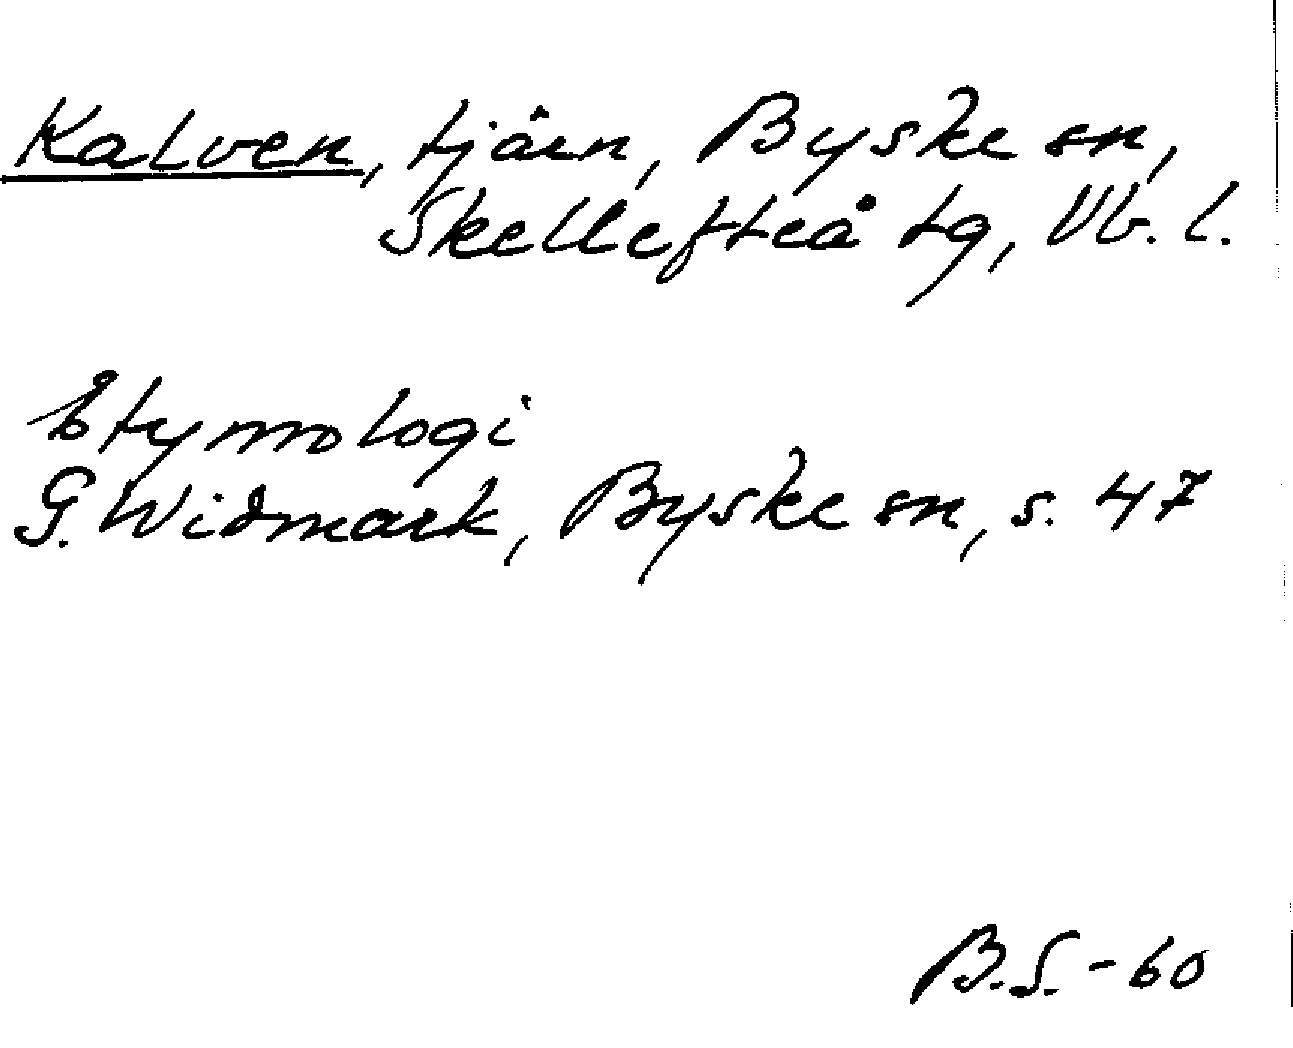 Kalven, tjärn, Byske sn,
Skellefteå tg, Vb. l.
Etymologi
G. Widmark, Byske sn, s. 47
B.S. - 60